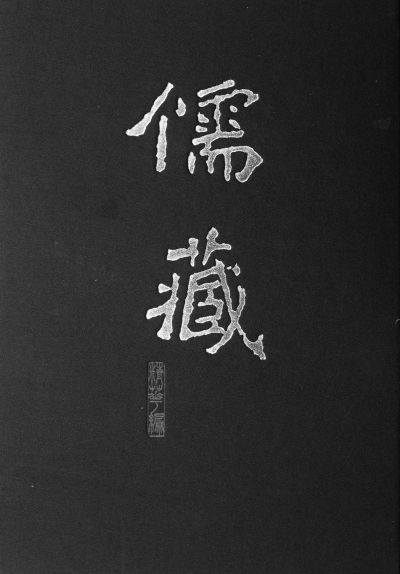 儒藏
精華編